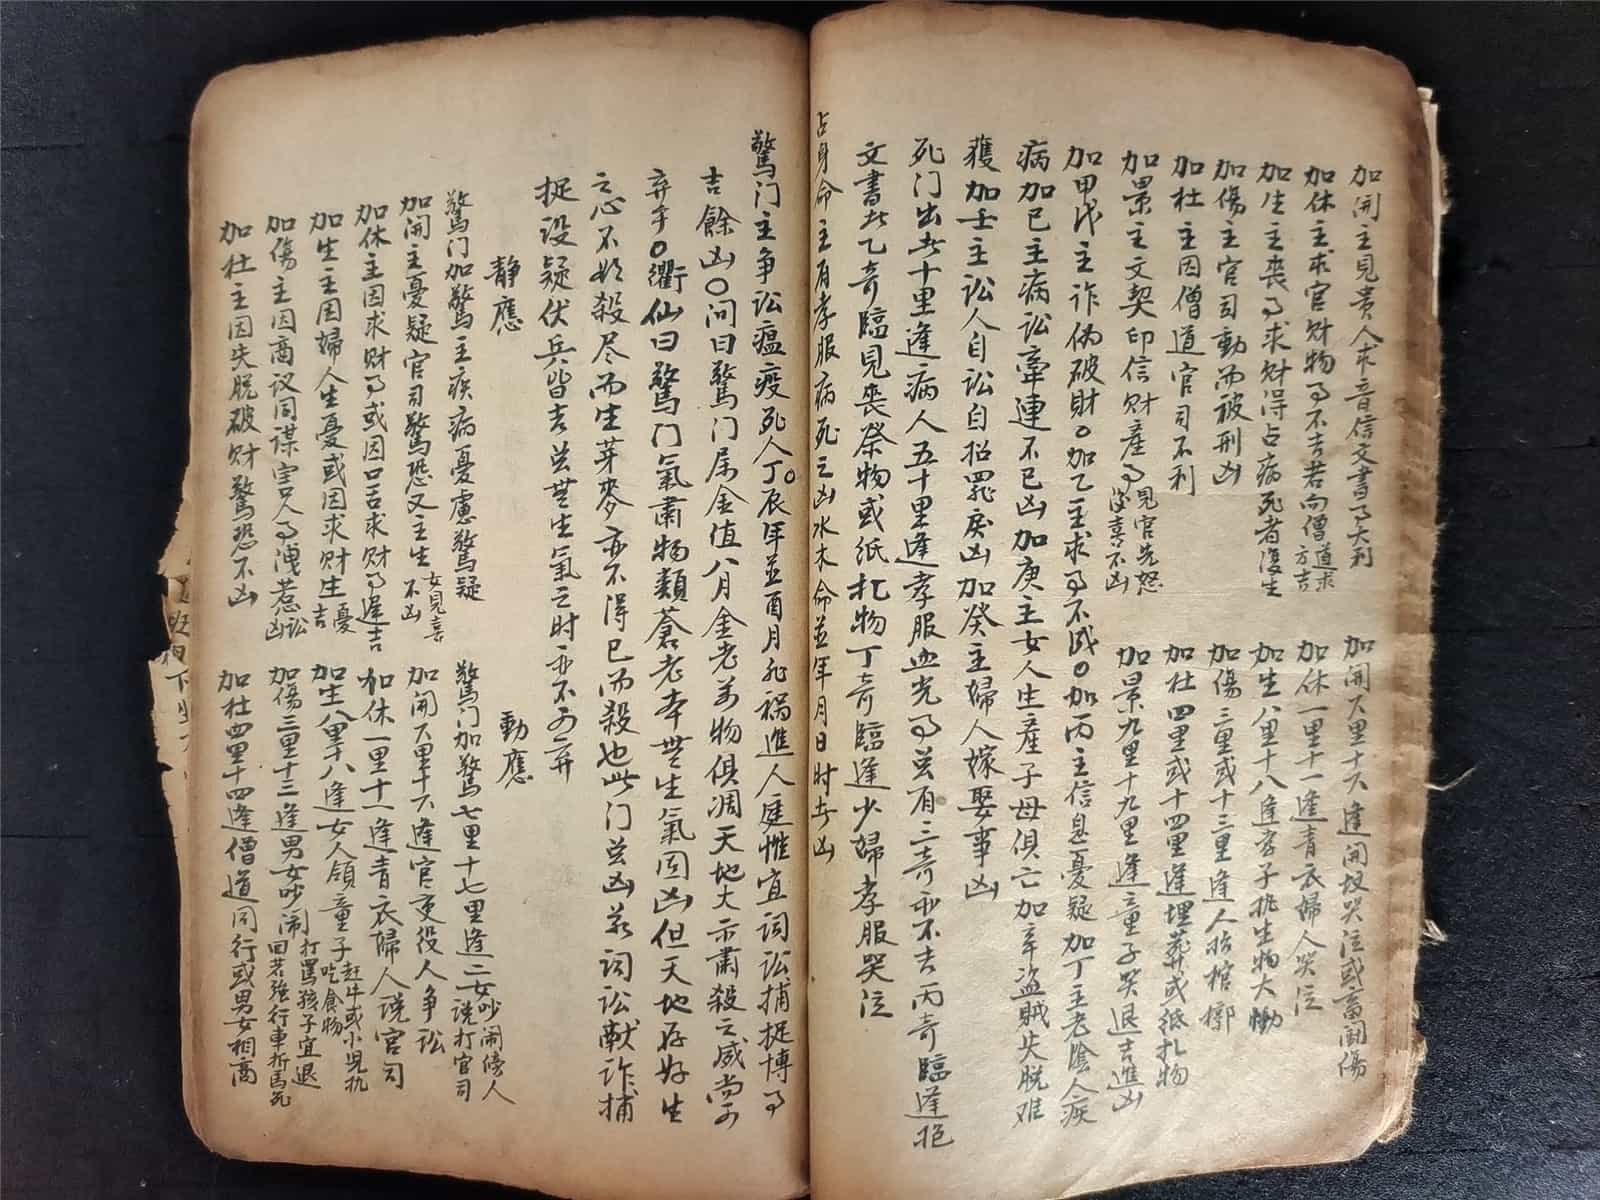 加開主見貴人求音信文書了大利
加休主求官財物了不吉若向僧道求方吉
加生主喪了求財得占病死者復生
加傷主官司動而被刑凶
加杜主因僧道官司不利
加景主文契印信財產了見官先怒後喜不凶
加開六里十六逢開坟哭泣或畜鬪傷
加休一里十一逢青衣婦人哭泣
加生八里十八逢孝子抱生物大慟
加傷三里或十三里逢人抬棺槨
加杜四里或十四里逢埋葬或紙扎物
加景九里十九里逢童子哭退吉進凶
加甲戊主詐偽破財○加乙主求了不成○加丙主信息憂疑加丁主老陰人疾
病加己主病訟牽連不已凶加庚主女人生產子母俱亡加辛盜賊失脫难
獲加壬主訟人自訟自招罪戾凶加癸主婦人嫁娶事凶
死门出此十里逢病人五十里逢孝服血光了若有三奇亦不吉丙奇臨逢抱
文書此乙奇臨見喪祭物或紙扎物丁奇臨逢少婦孝服哭泣
占身命主有孝服病死之凶水木命並年月日时占凶
驚门主争訟瘟疫死人丁○辰年並酉月飛禍進人庭惟宜詞訟捕捉博了
吉餘凶○问曰驚门属金值八月金老万物俱凋天地大示肅殺之威當可
弃乎○衢仙曰驚门氣肅物類蒼老本無生氣固凶但天地存好生
之心不欲殺尽而生芽麥亦不得已而殺也此门若凶若詞訟献詐捕
捉设疑伏兵皆吉若無生氣之时亦不可弃
静應
動應
驚门加驚主疾病憂慮驚疑
加開主憂疑官司驚恐又主生女見喜不凶
加休主因求財了或因口舌求財了遲吉
加生主因婦人生憂或因求財生憂吉
加傷主因商议同谋害人了洩惹訟凶
加杜主因失脫破財驚恐不凶
驚门加驚七里十七里逢二女吵鬧傍人说打官司
加開六里十六逢官吏役人争訟
加休一里十一逢青衣婦人说官司
加生八里十八逢女人領童子赶牛或小児执吃食物
加傷三里十三逢男女吵闹打罵孩子宜退回若強行車折馬死
加杜四里十四逢僧道同行或男女相商